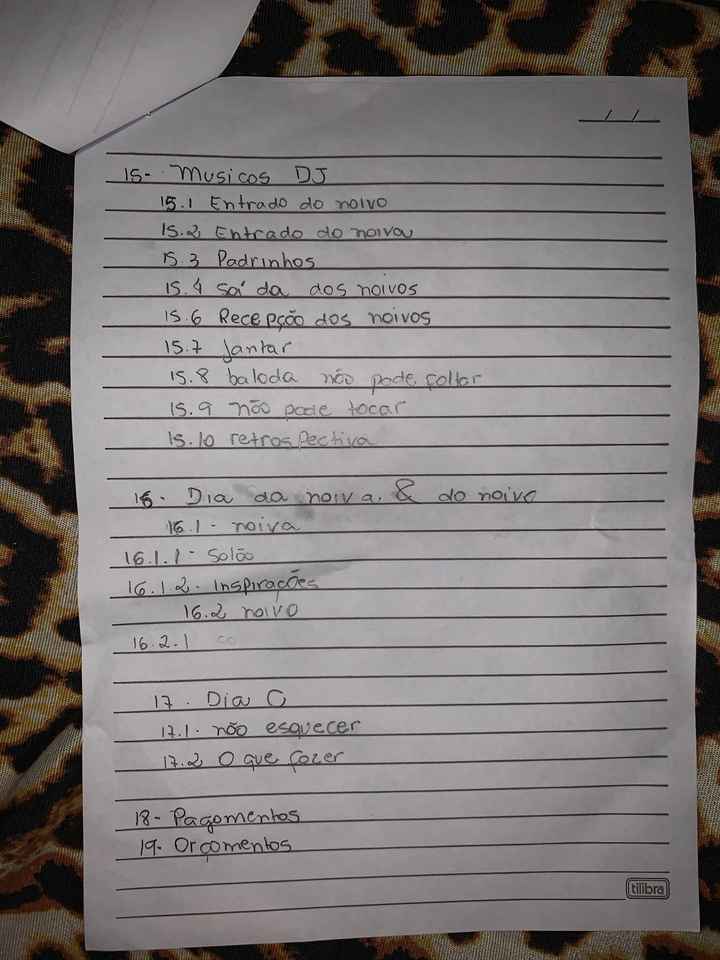 / /
15- Musicos DJ
15.1 Entrado do noivo
15.2 Entrado do noiva
15.3 Padrinhos
15.4 Saída dos noivos
15.6 Recepção dos noivos
15.7 Jantar
15.8 balada não pode faltar
15.9 não pode tocar
15.10 retrospectiva
16. Dia da noiva & do noivo
16.1- noiva
16.1.1- Salão
16.1.2- Inspirações
16.2 noivo
16.2.1
17. Dia C
17.1. não esquecer
17.2 O que fazer
18- Pagamentos
19. Orçamentos
tilibra